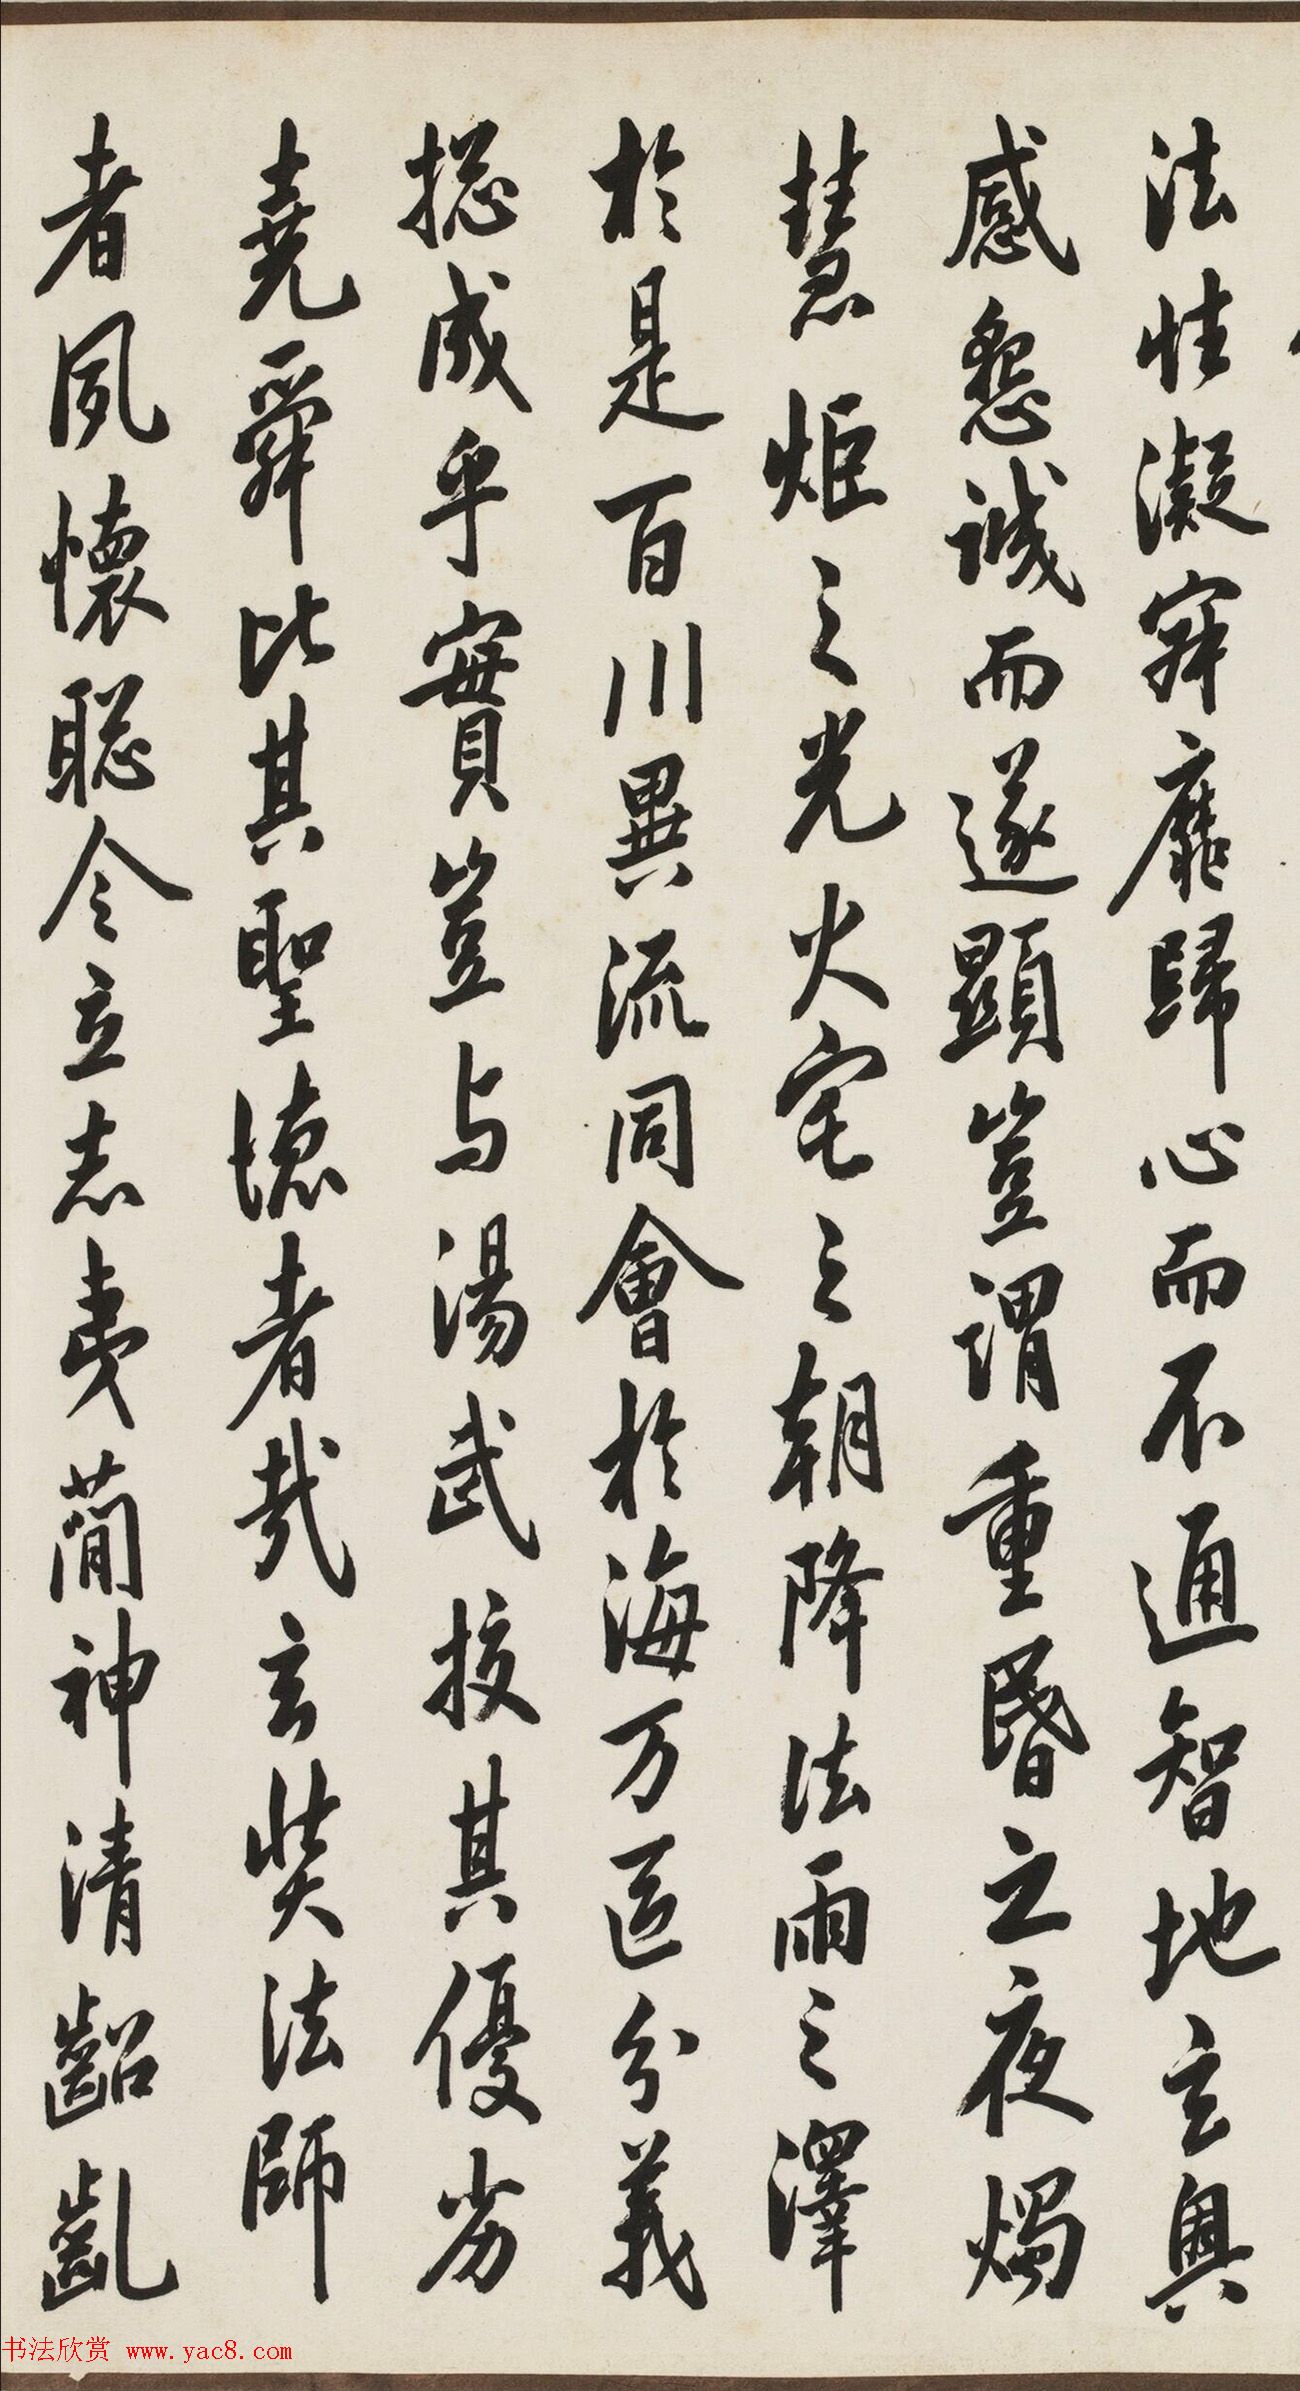 法性凝寂靡歸心而不通智地玄奧
感懇誠而遂顯豈謂重昏之夜燭
慧炬之光火宅之朝降法雨之澤
於是百川異流同會於海万區分義
揔成乎實豈与湯武校其優劣
堯舜比其聖德者哉玄奘法師
者夙懷聡令立志夷蕳神清齠齓
书法欣赏 www.yac8.com